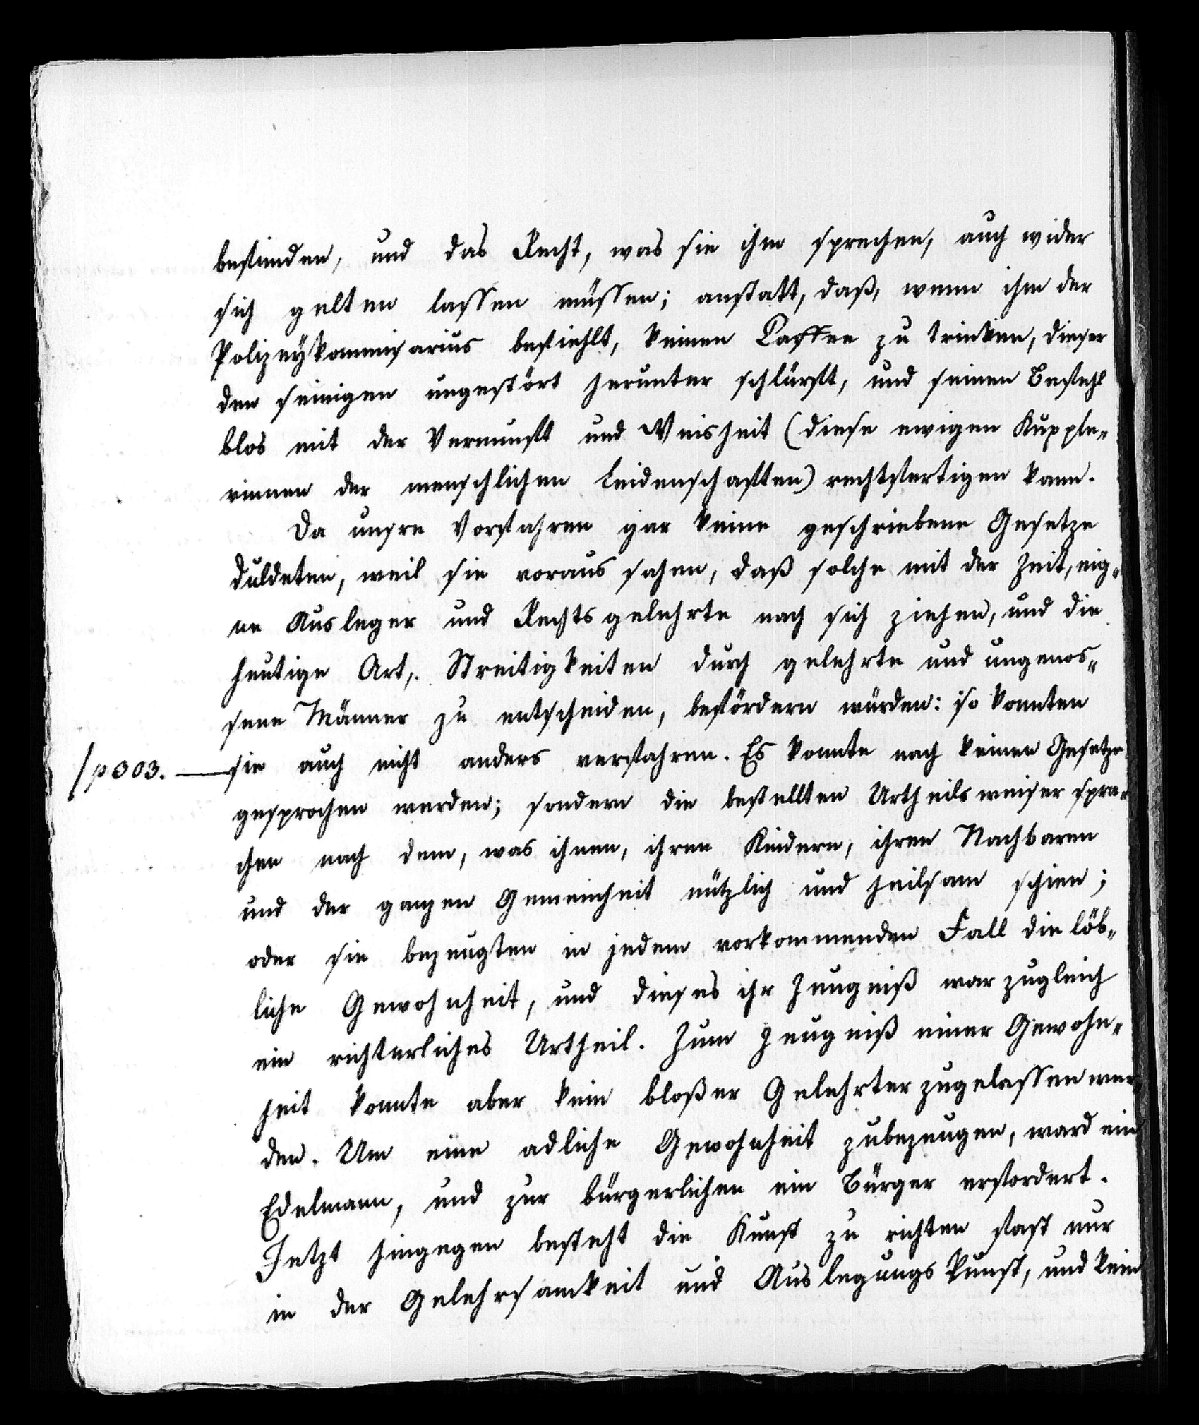 befinden, und das Recht, was sie ihm sprechen, auch wider
sich gelten lassen müssen; anstatt, daß, wenn ihm der
Polizeykommissarius befiehlt, keinen Caffee zu trinken, dieser
den seinigen ungestört herunter schlürft, und seinen Befehl
blos mit der Vernunft und Weisheit (diese ewigen Kupple„
rinnen der menschlichen Leidenschaften) rechtfertigen kann.
Da unsre Vorfahren gar keine geschriebene Gesetze
duldeten, weil sie voraus sahen, daß solche mit der Zeit, eig„
ne Ausleger und Rechtsgelehrte nach sich ziehen, und die
heutige Art, Streitigkeiten durch gelehrte und ungenos„
sene Männer zu entscheiden, befördern würden: so konnten
/p303. — sie auch nicht anders verfahren. Es konnte nach keinen Gesetze
gesprochen werden; sondern die bestellten Urtheilsweiser spra„
chen nach dem, was ihnen, ihren Kindern, ihren Nachbaren
und der ganzen Gemeinheit nützlich und heilsam schien;
oder sie bezeugten in jedem vorkommenden Fall die löb„
liche Gewohnheit, und dieses ihr Zeugniß war zugleich
ein richterliches Urtheil. Zum Zeugniß einer Gewohn„
heit konnte aber kein bloßer Gelehrter zugelassen wer„
den. Um eine adliche Gewohnheit zubezeugen, ward ein
Edelmann, und zur bürgerlichen ein Bürger erfordert.
Jetzt hingegen besteht die Kunst zu richten fast nur
in der Gelehrsamkeit und Auslegungskunst, und kein